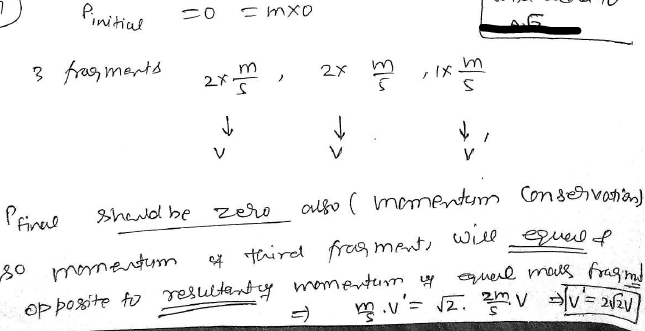 P initial = 0 = m×0
3 fragments 2× m/5 , 2× m/5 , 1× m/5
↓ ↓ ↓ ,
V V V
P final should be zero also ( momentum conservation)
so momentum of third fragment, will equal &
opposite to resultant of momentum of equal mass fragment
⇒ m/5 . V' = √2 . 2m/5 V ⇒ V' = 2√2V